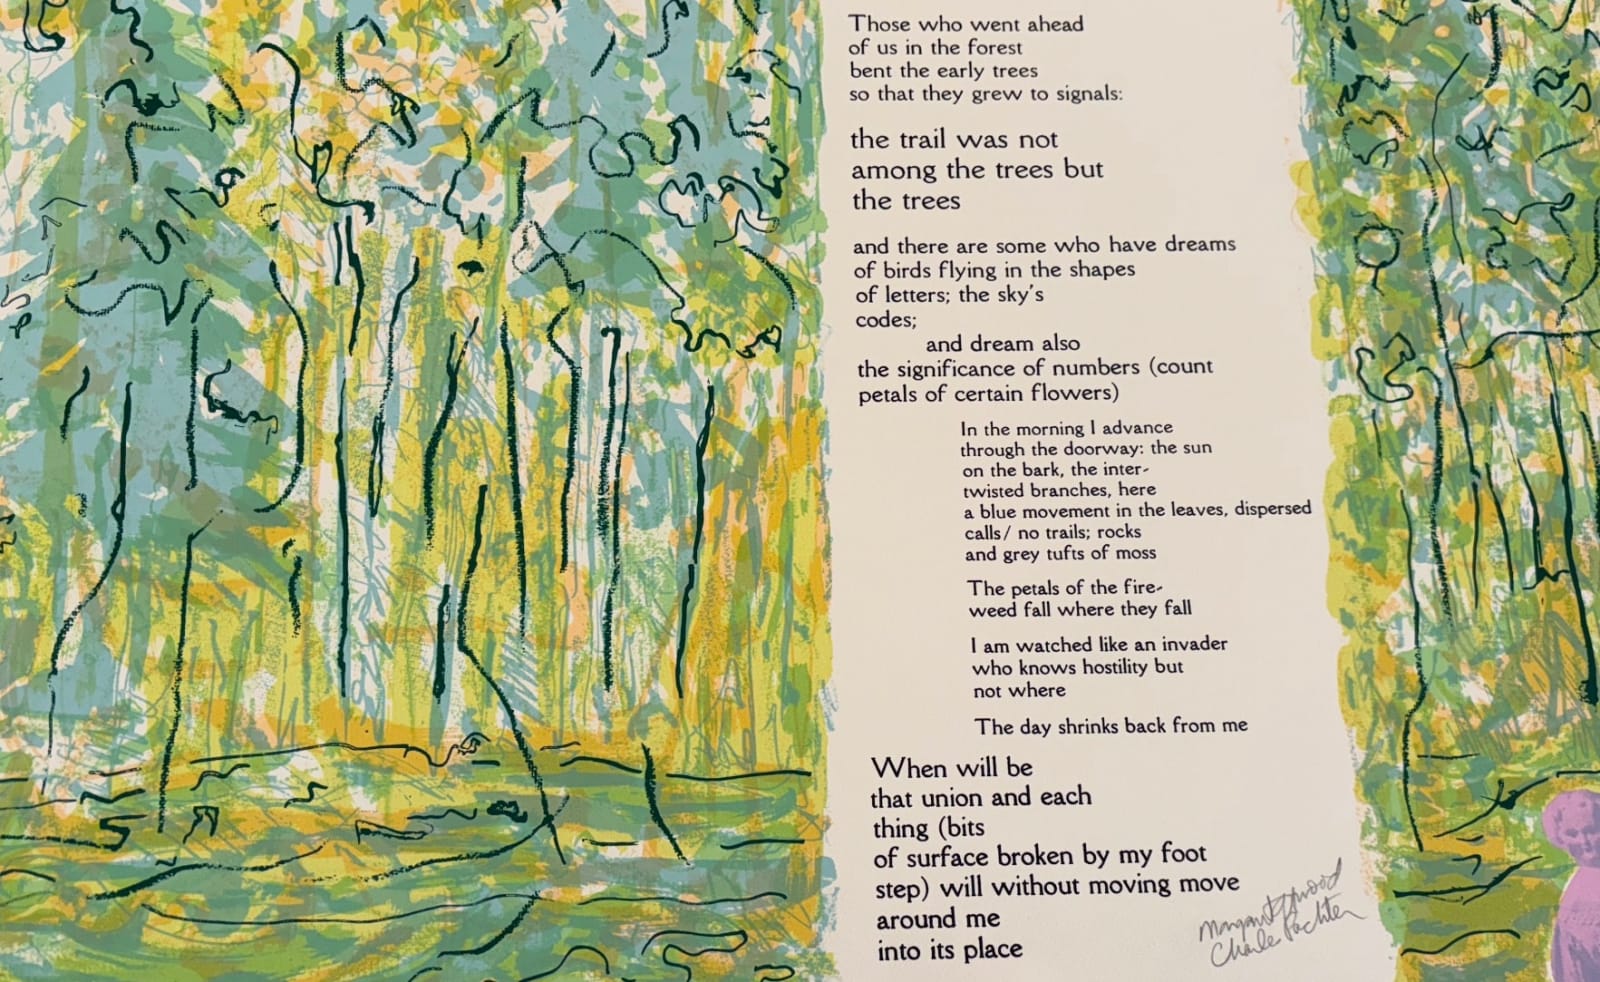 Those who went ahead
of us in the forest
bent the early trees
so that they grew to signals:
the trail was not
among the trees but
the trees
and there are some who have dreams
of birds flying in the shapes
of letters; the sky's
codes;
and dream also
the significance of numbers (count
petals of certain flowers)
In the morning I advance
through the doorway: the sun
on the bark, the inter-
twisted branches, here
a blue movement in the leaves, dispersed
calls/ no trails; rocks
and grey tufts of moss
The petals of the fire-
weed fall where they fall
I am watched like an invader
who knows hostility but
not where
The day shrinks back from me
When will be
that union and each
thing (bits
of surface broken by my foot
step) will without moving move
around me
into its place
Margaret Atwood
Charles Pachter